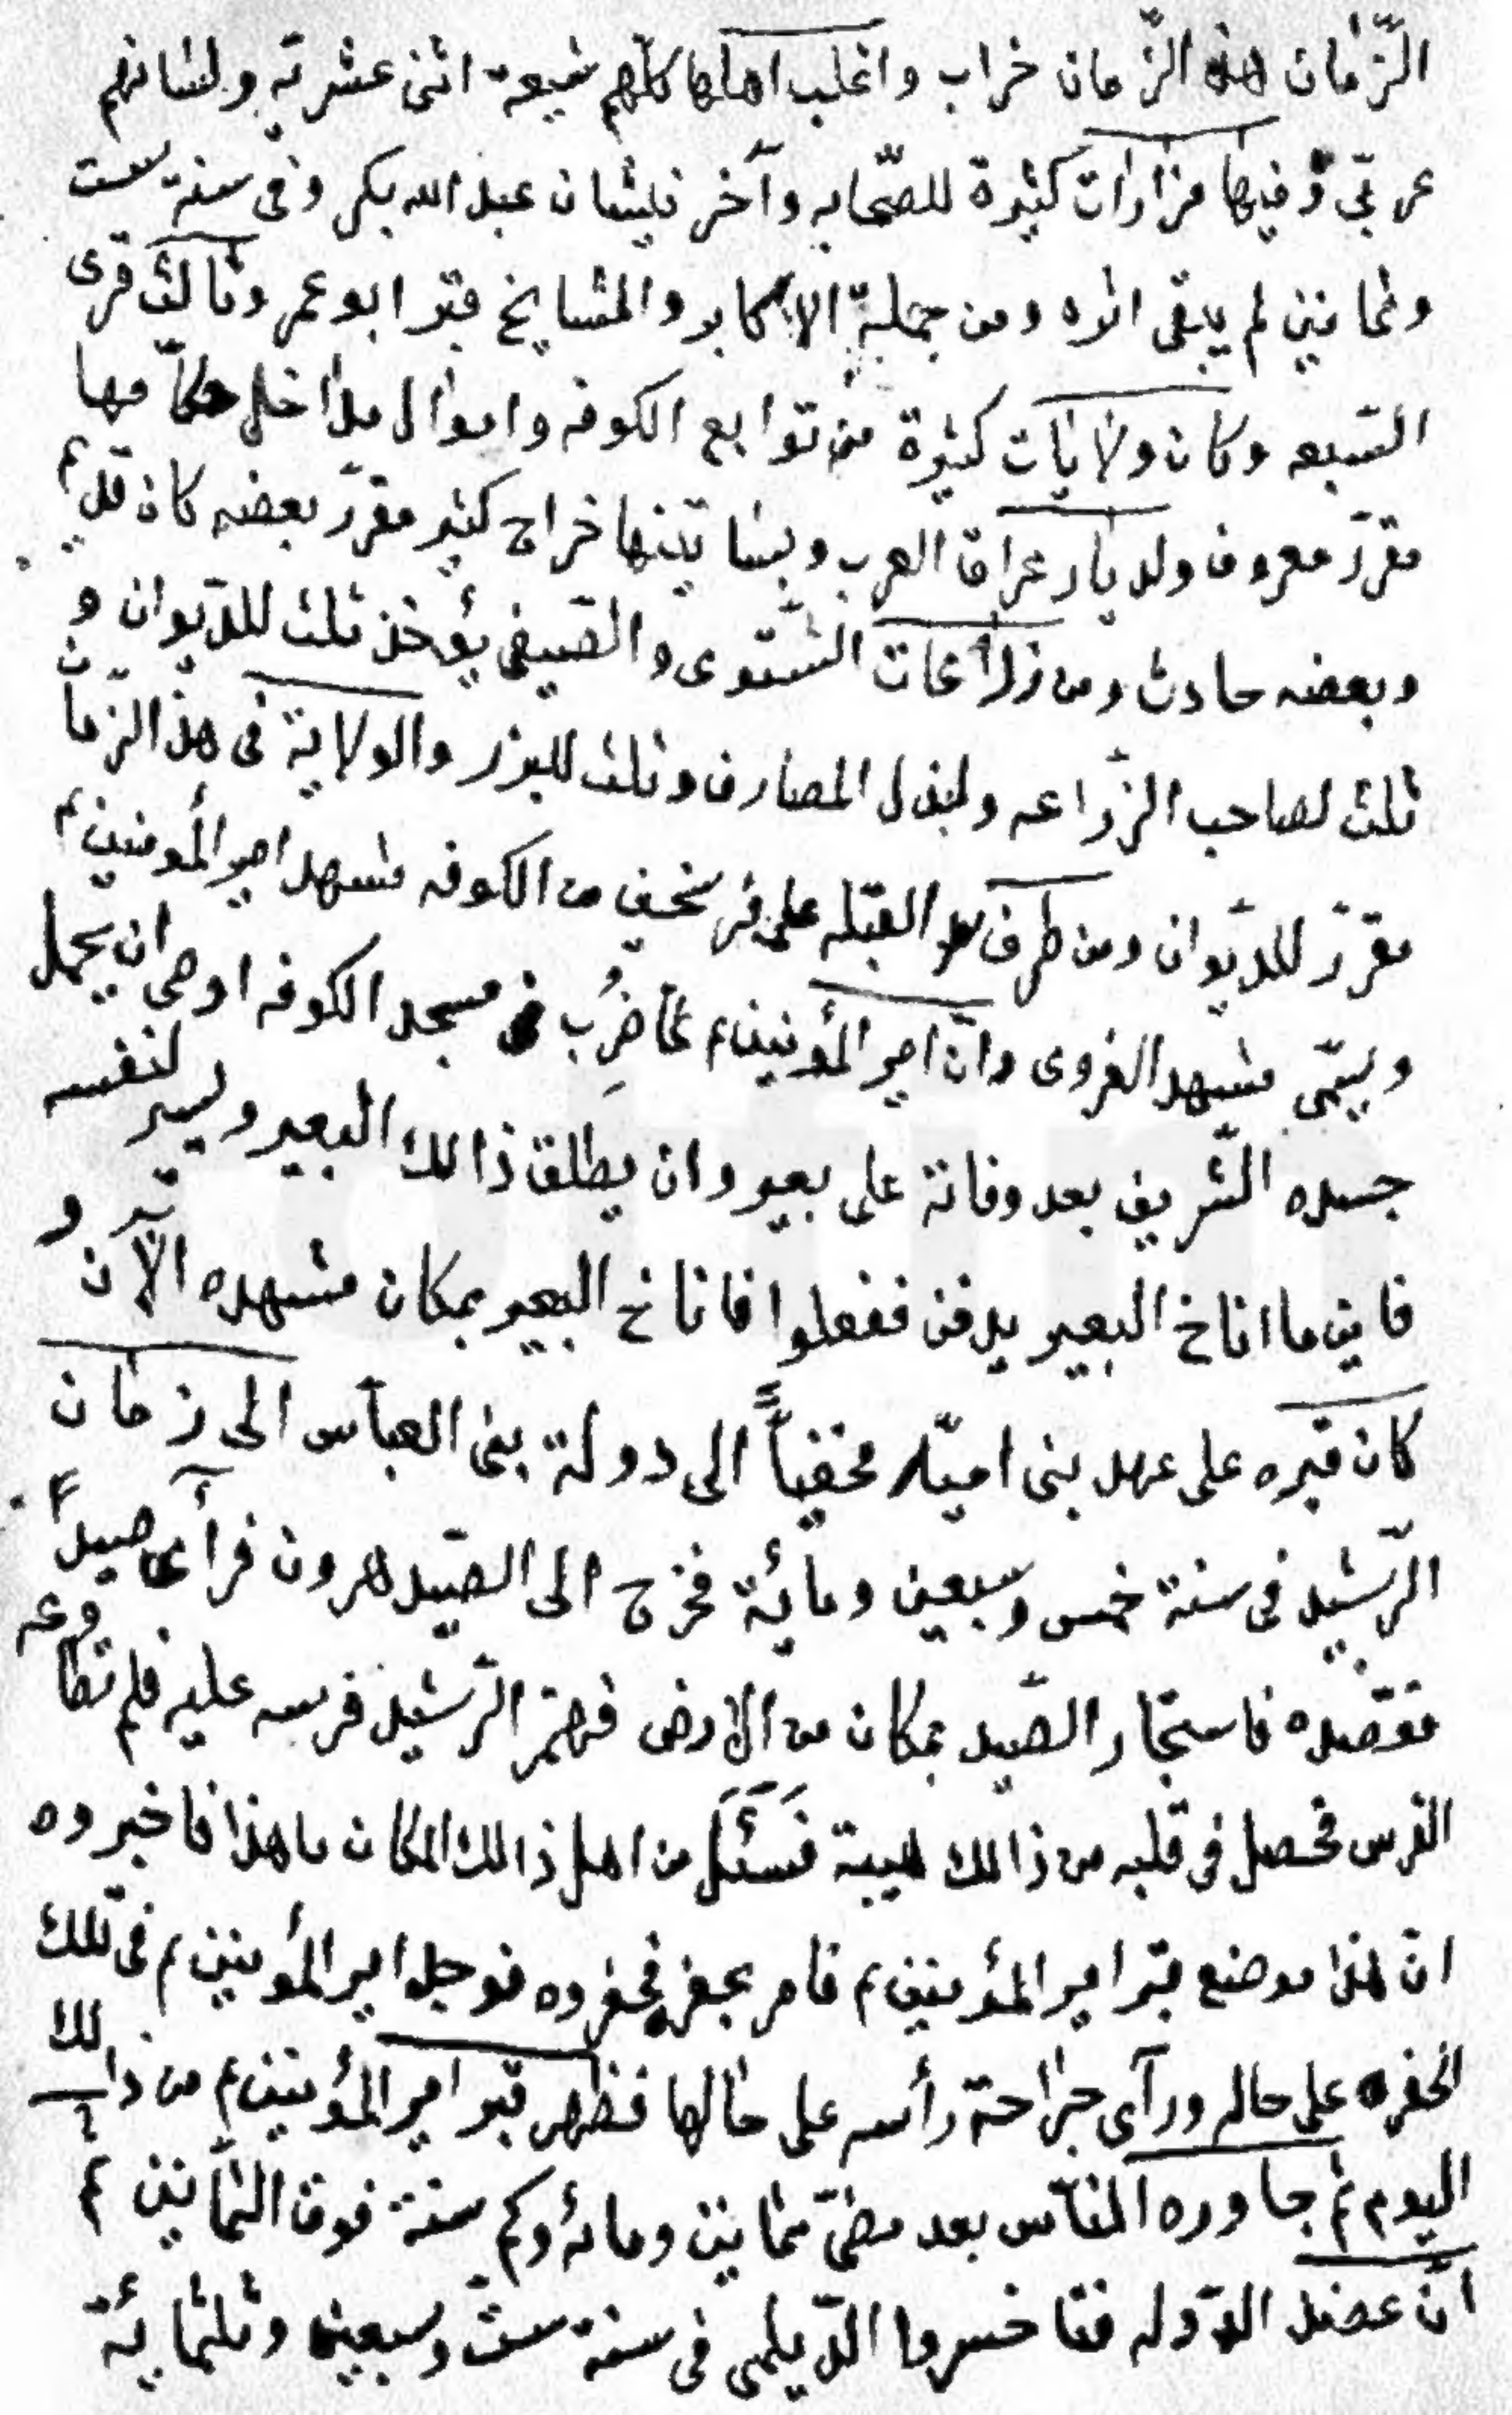 الزّمان هذه الزّمان خراب واغلب اهلها كلّهم شيعة اثنى عشرته ولسانهم
عربّي وفيها مزارات كثيرة للصّحابه وآخر نيشان عبد الله بكر وفى سنة ست
وثمانين لم يبقى اثره ومن جملة الاكابر والمشايخ قبر ابو عمر وثالث قرى
السّبعه وكان ولايات كثيرة من توابع الكوفه واموال مداخل حكّامها
مقرّر معروف ولديار عراق العرب وبساتينها خراج كثير مقرّر بعضه كان قديم
وبعضه حادث ومن زراعات الشّتوى والصّيفى يؤخذ ثلث للدّيوان و
ثلث لصاحب الزّراعه ولبذل المصارف وثلث للبزر والولاية فى هذ الزّمان
مقرّر للدّيوان ومن طرف القبله على فرسخين من الكوفه مشهد امير المؤمنين ع
ويسمّى مشهد الغروى وانّ امير المؤمنين ع لمّا ضُرِب فى مسجد الكوفه اوصى ان يحمل
جسده الشّريف بعد وفاتة على بعير وان يطلق ذالك البعير ويسير لنفسه
فاين ما اناخ البعير يدفن ففعلوا فاناخ البعير بمكان مشهده الآن و
كان قبره على عهد بنى اميّه مخفياً الى دولة بنى العبّاس الى زمان
الرّشيد فى سنة خمس وسبعين ومائة فخرج الى الصّيد هرون فرآى صيداً
فقصده فاستجار الصّيد بمكان من الارض فهمز الرّشيد فرسه عليه فلم تطاوعه
الفرس فحصل فى قلبه من ذالك هيبة فَسَئَل من اهل ذالك المكان ما هذا فاخبروه
انّ هذا موضع قبر امير المؤمنين ع فامر بحفر فحفروه فوجد امير المؤمنين ع فى تلك
الحفره على حاله ورآى جراحة رأسه على حالها فظهر قبر امير المؤمنين ع من ذالك
اليوم ثم جاوره النّاس بعد مضىّ ثمانين ومائه وكم سنة فوق الثّمانين ثم
انّ عضد الدّوله فناخسروا الدّيلمى فى سنة ستّ وسبعين وثلثمايئة